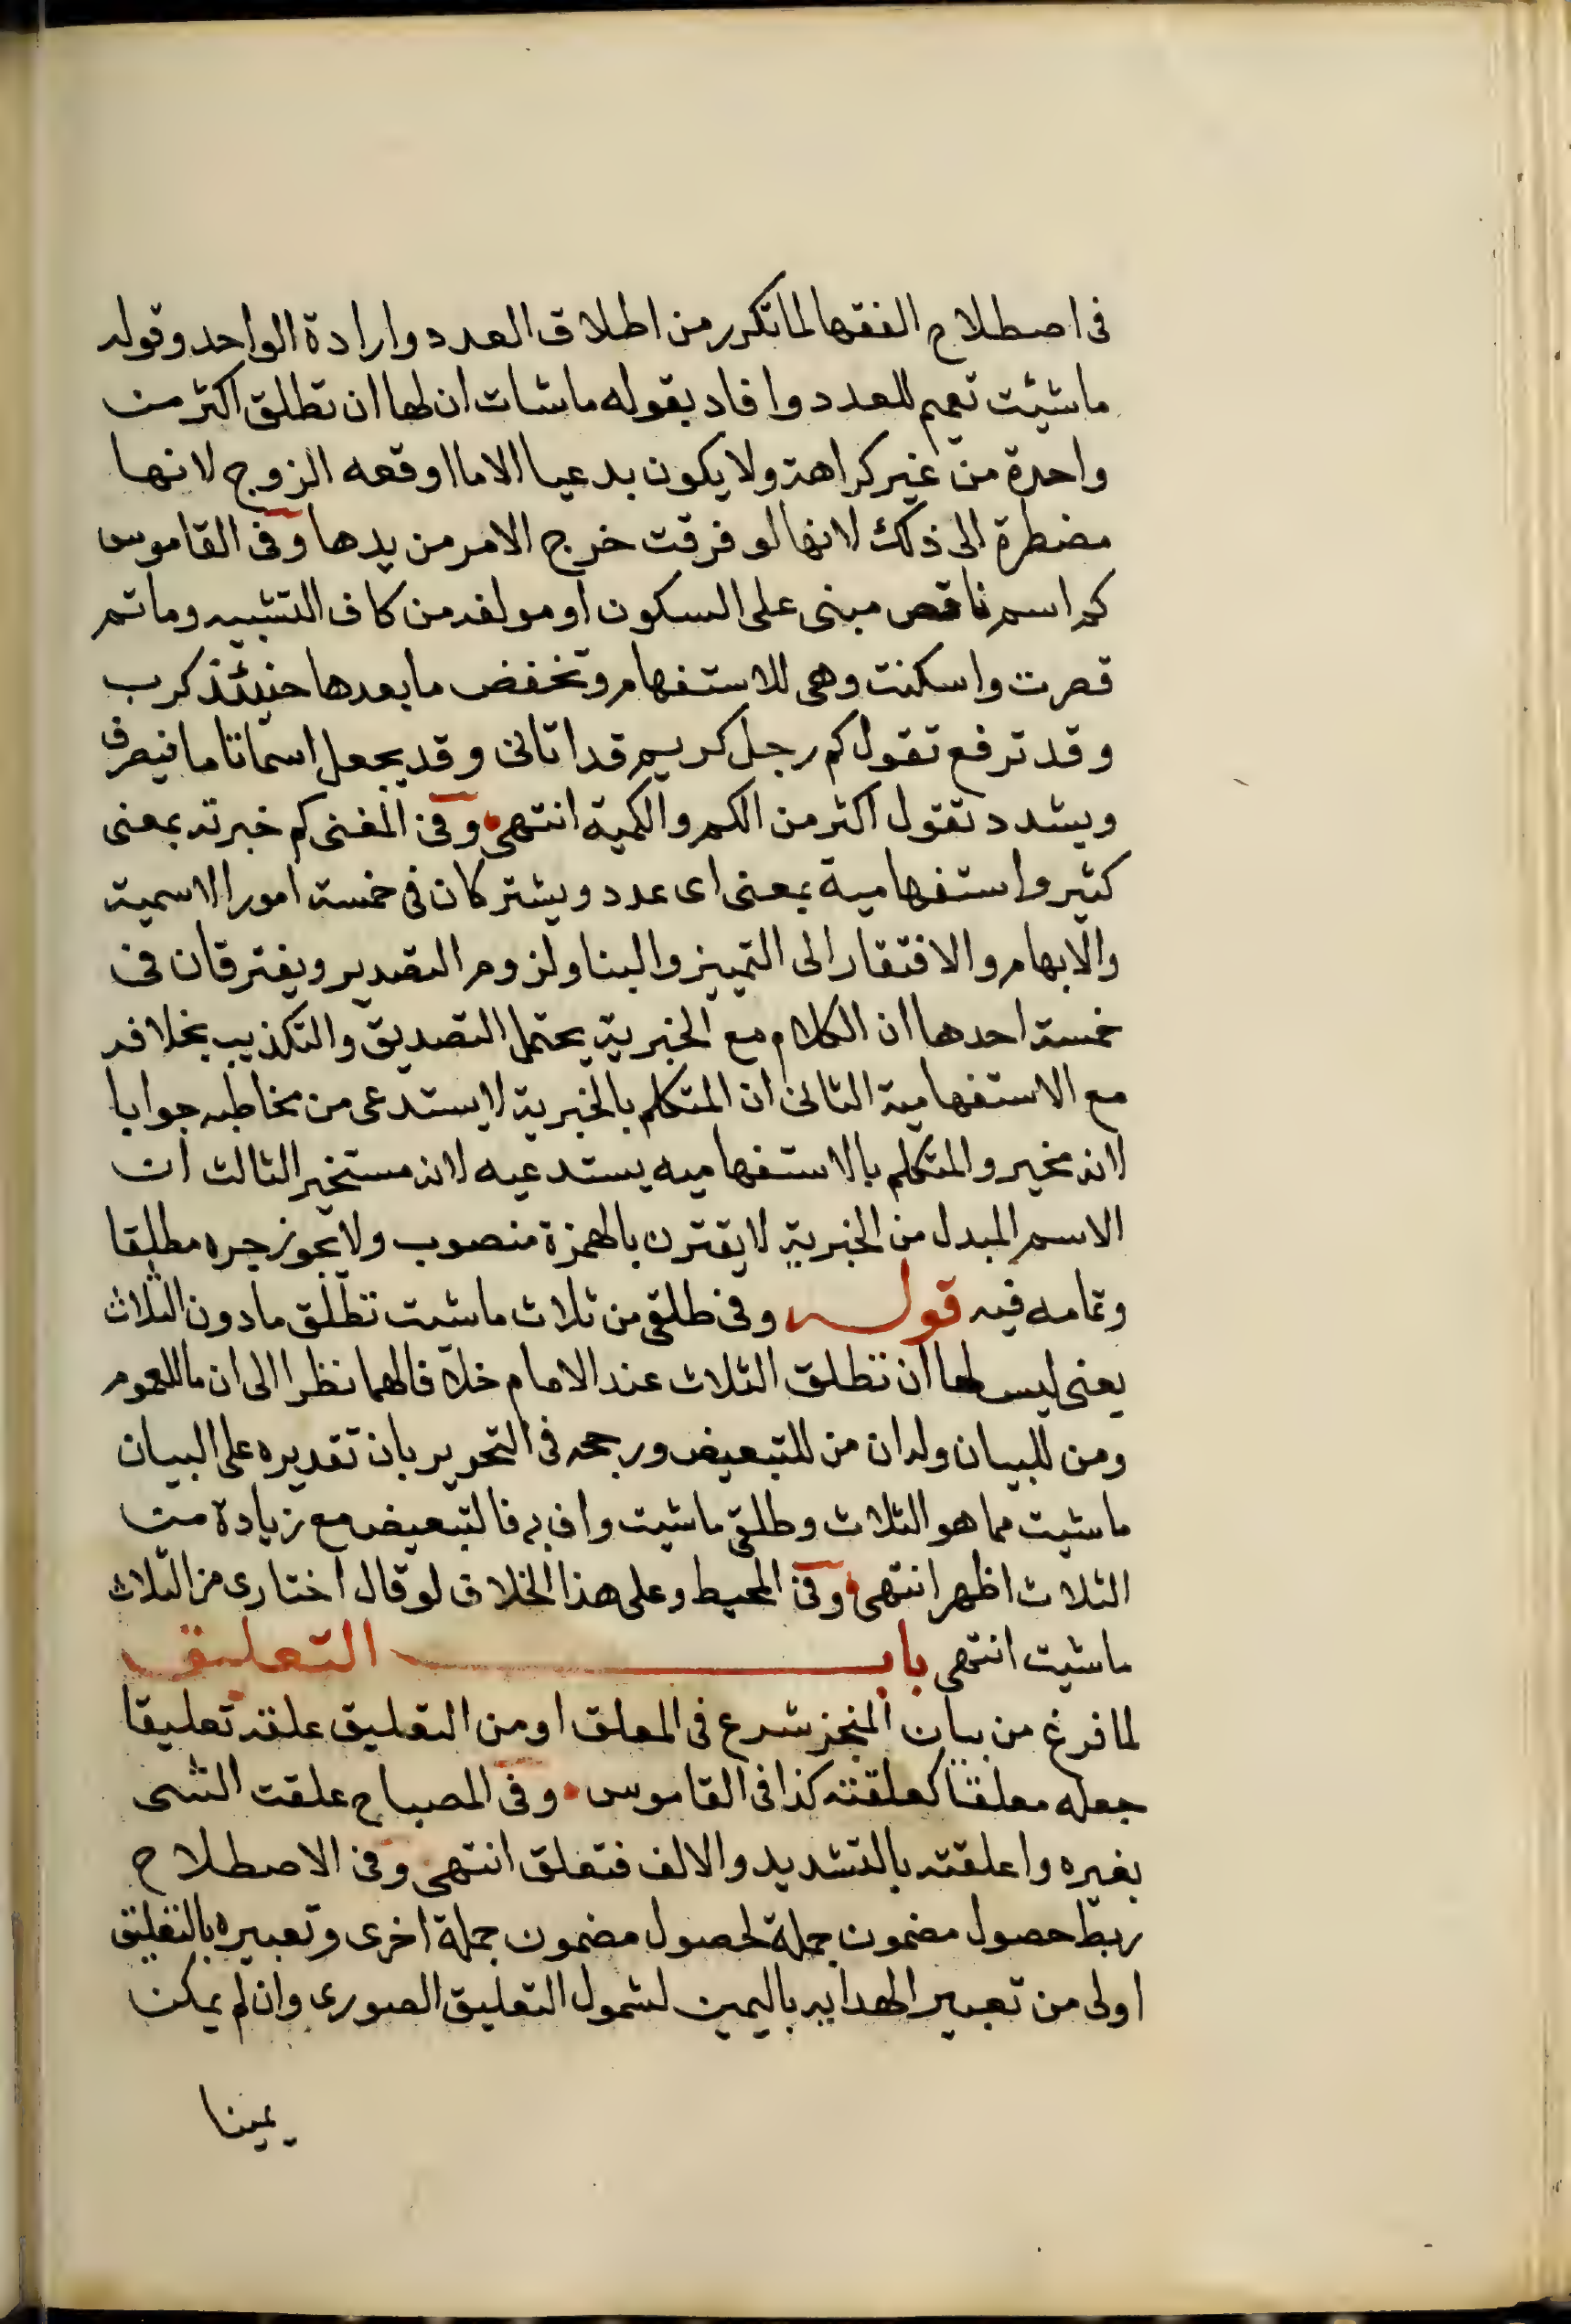 فى اصطلاح الفقها لما تكرر من اطلاق العدد وارادة الواحد وقوله
ما شيئت تعميم للعدد وافاد بقوله ما شات ان لها ان تطلق اكثر من
واحدة من غير كراهة ولا يكون بدعيا الا ما اوقعه الزوج لانها
مضطرة الى ذلك لانها لو فرقت خرج الامر من يدها وفى القاموس
كم اسم ناقص مبنى على السكون او مولفه من كاف التشبيه وما ثم
قصرت واسكنت وهى للاستفهام وتخفض ما بعدها حنيئذ كرب
وقد ترفع تقول كم رجل كريم قد اتانى وقد يجعل اسما تاما فيصرف
ويشدد تقول اكثر من الكم والكمية انتهى وفى المغنى كم خبرته بمعنى
كثير واستفهامية بمعنى اى عدد ويشتركان فى خمسة امور الاسمية
والابهام والافتقار الى التمييز والبنا ولزوم التصدير ويفترقان فى
خمسة احدها ان الكلام مع الخبرية يحتمل التصديق والتكذيب بخلافه
مع الاستفهامية الثانى ان المتكلم بالخبرية لا يستدعى من مخاطبه جوابا
لانه مخبر والمتكلم بالاستفهاميه يستدعيه لانه مستخبر الثالث ان
الاسم المبدل من الخبرية لا يقترن بالهمزة منصوب ولا يجوز جره مطلقا
وتمامه فيه قوله وفى طلقى من ثلاث ما شيت تطلق ما دون الثلاث
يعنى ليس لها ان تطلق الثلاث عند الامام خلافا لهما نظرا الى ان ما للعموم
ومن للبيان وله ان من للتبعيض ورجحه فى التحرير بان تقديره على البيان
ما شيت مما هو الثلاث وطلقى ما شيت واف به فالتبعيض مع زيادة من
الثلاث اظهر انتهى وفى المحيط وعلى هذا الخلاف لو قال اختارى من الثلاث
ما شيت انتهى باب التعليق
لما فرغ من بيان المنجز شرع فى المعلق او من التعليق علقه تعليقا
جعله معلقا كعلقته كذا فى القاموس وفى المصباح علقت الشى
بغيره واعلقته بالتشديد والالف فتعلق انتهى وفى الاصطلاح
ربط حصول مضمون جملة لحصول مضمون جملة اخرى وتعبيره بالتعليق
اولى من تعبير الهدايه باليمين لشمول التعليق الصورى وان لم يكن
يمينا